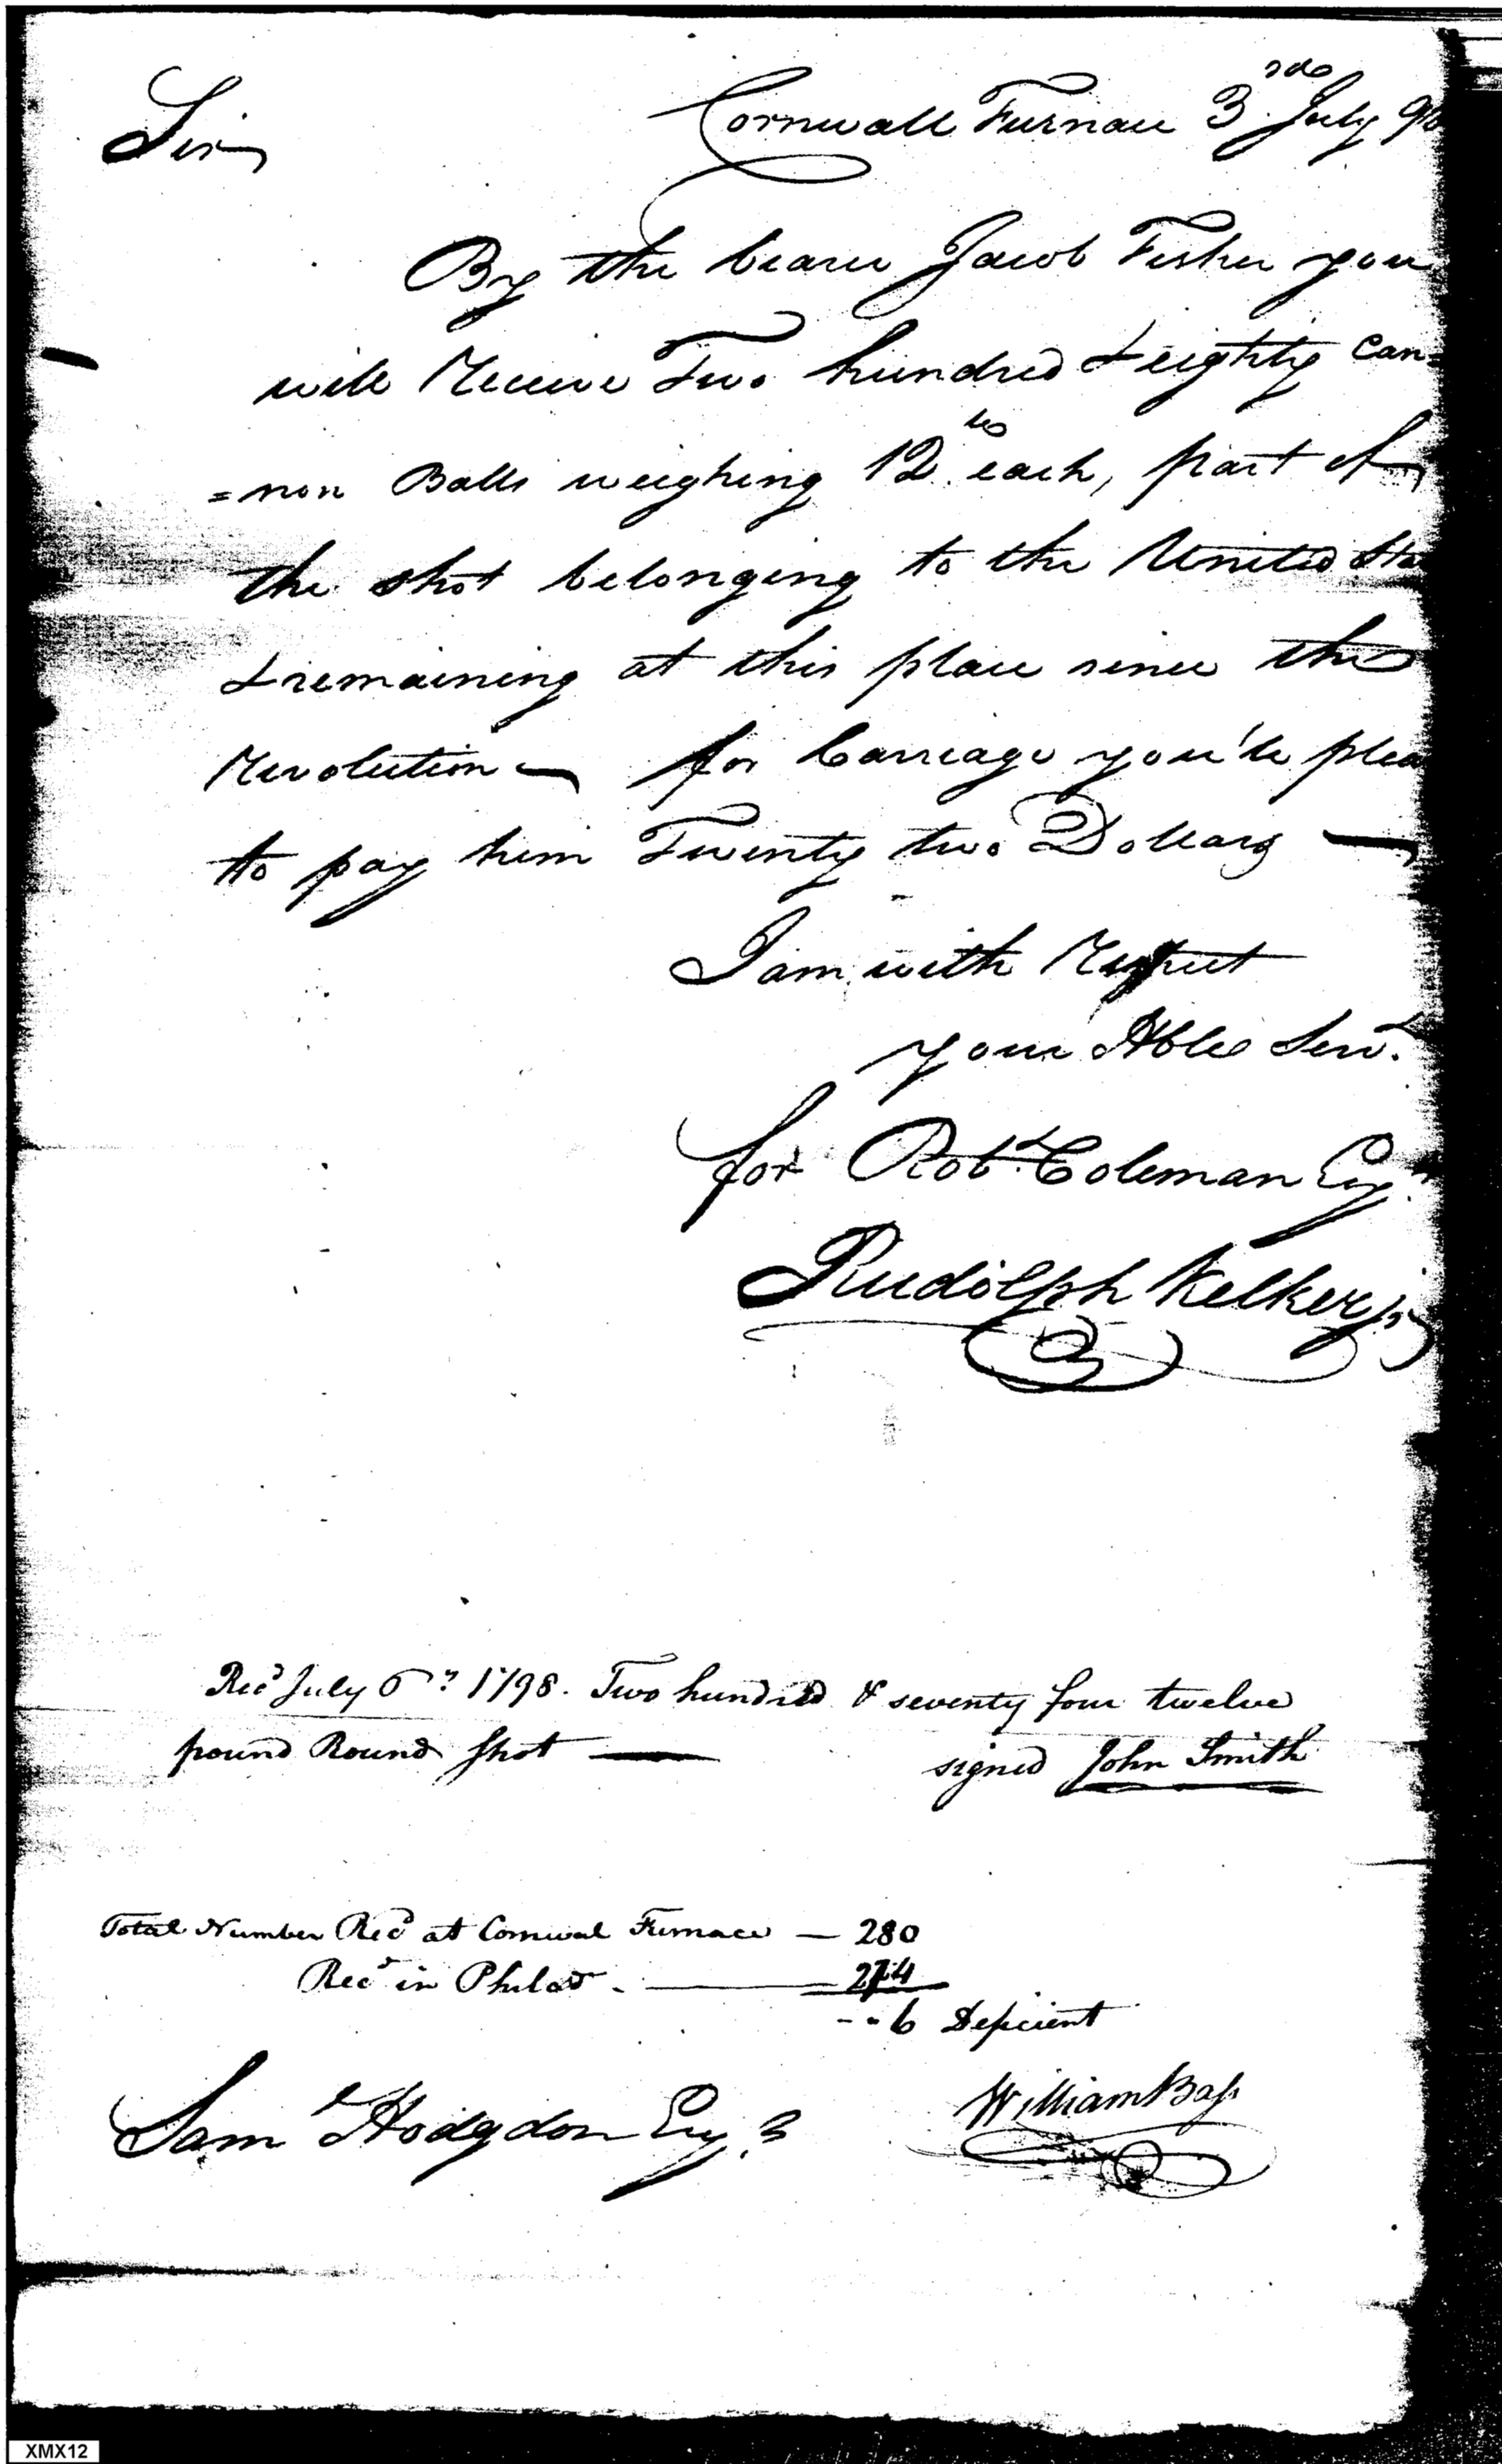 Cornwall Furnace 3rd July 98
Sir
By the bearer Jacob Fisher you
will Receive Two hundred & eighty Can=
=non Balls weighing 12 lb each, part of
the shot belonging to the United Sta
& remaining at this place since the
Revolution — for Carriage you'll plea
to pay him Twenty two Dollars —
I am with Respect
your Hble Servt.
for Robt. Coleman Esqr.
Rudolph Kelker jr
Recd July 6th 1798. Two hundred & seventy four twelve
pound Round Shot —
signed John Smith
Total Number Recd at Cornwal Furnace — 280
Recd in Philad. — 274
-- 6 Deficient
William Bass
Saml Hodgdon Esqr.
XMX12